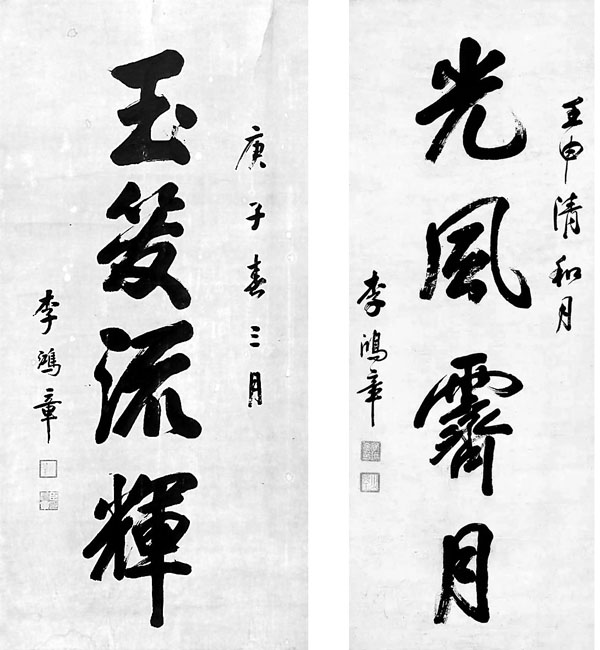 壬申清和月
光風霽月
李鴻章
庚子春三月
玉笈流輝
李鴻章